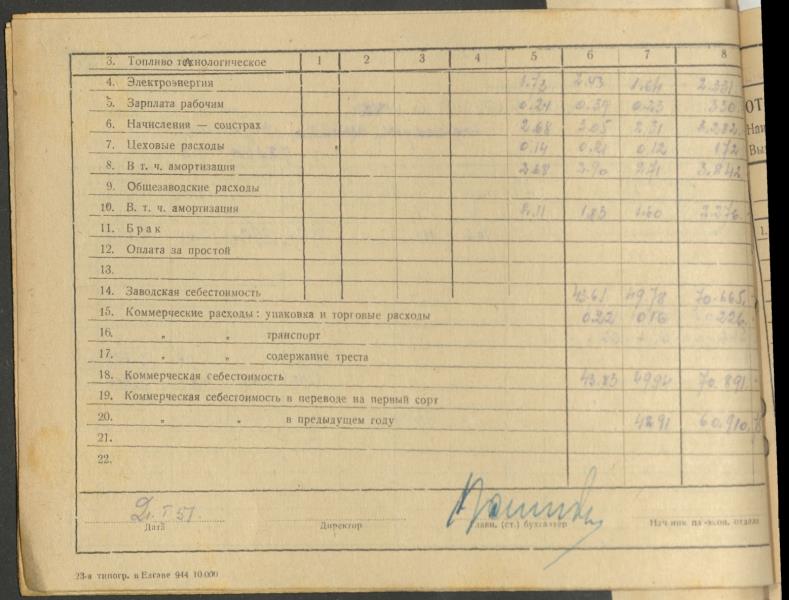 3. Топливо технологическое 1 2 3 4 5 6 7 8
4. Электроэнергия 1.73 2.43 1.64 2.331
5. Зарплата рабочим 0.24 0.34 0.23 330
6. Начисления — соцстрах 2.68 3.05 2.31 3.282
7. Цеховые расходы 0.14 0.21 0.12 172
8. В т. ч. амортизация 2.68 3.90 2.71 3.842
9. Общезаводские расходы
10. В. т. ч. амортизация 1.83 1.60 2.276
11. Брак
12. Оплата за простой
13.
14. Заводская себестоимость 43.61 49.78 70.665
15. Коммерческие расходы: упаковка и торговые расходы 0.22 0.16 226
16. „ „ транспорт
17. „ „ содержание треста
18. Коммерческая себестоимость 43.83 49.94 70.891
19. Коммерческая себестоимость в переводе на первый сорт
20. „ „ в предыдущем году 42.91 60.910
21.
22.
Дата Директор Главн. (ст.) бухгалтер
23-я типогр. в Елгаве 944 10.000
ОТ
Наи
Вы
1.